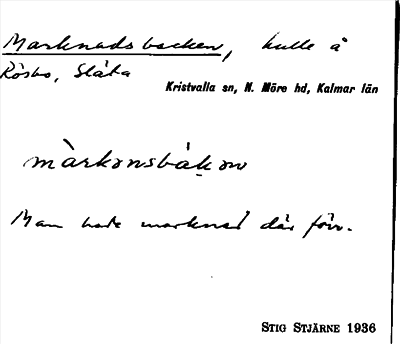 Marknadsbacken, kulle å
Rösbo, Slåta
Kristvalla sn, N. Möre hd, Kalmar län
màrkənsbákəɴ
Man hade marknad där förr.
STIG STJÄRNE 1936